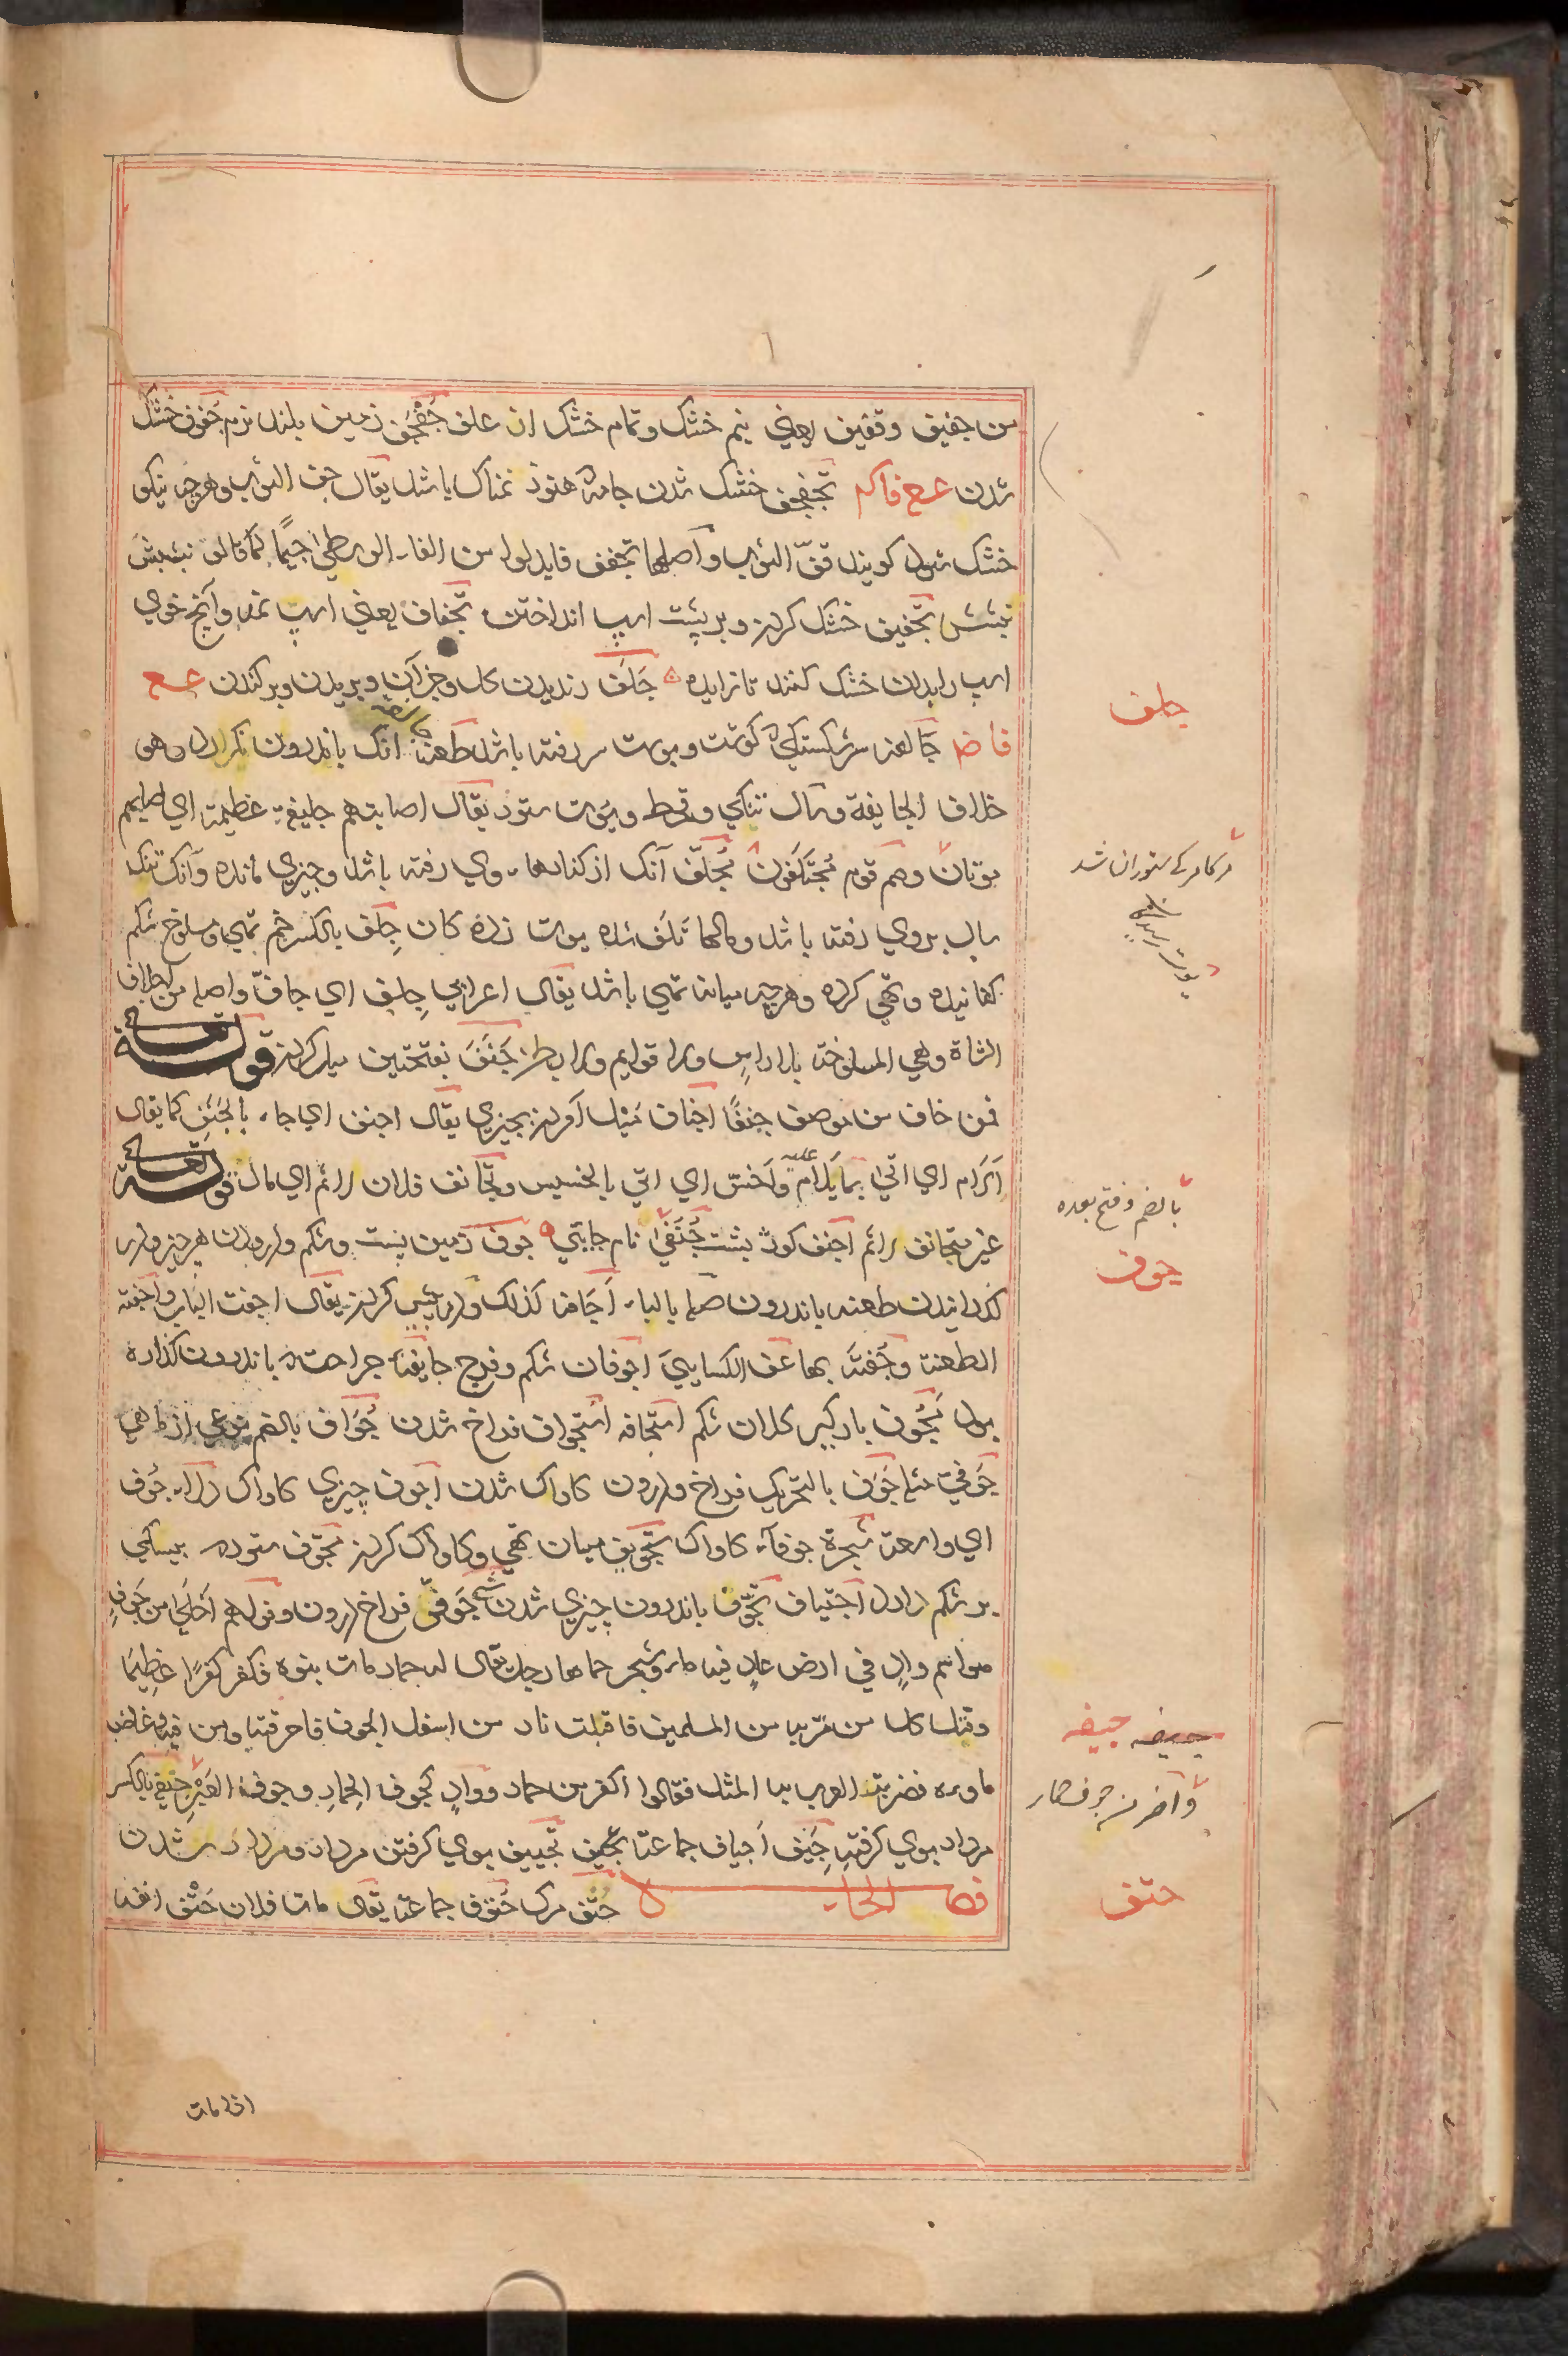 من جفیف وقفیف یعنی نیم خشک وتمام خشک از علف جَفْجَف زمین بلند نرم جفوف خشک
شدن ع ع فاکم تجفجف خشک شدن جامه هنوز نمناک باشد یقال جف الثوب وهرچه نیکو
خشک شود کویند قفّ الثوب واصلها تجفف فابدلوا من الفاء الوسطی جیمًا کما قالوا تبشبش
تبشش تجفیف خشک کردن وبر پشت اسپ انداختن تجفاف یعنی اسپ نمد وآنچ خوی
اسپ را بدان خشک کنند تا نزایده جَلَف رندیدن کل وجز آن وبریدن وبرکندن ع ع
فا ض جالفه سرشکستکی کوشت وپوست سر رفته باشد طعنه انک باندرون نکرادد وهو
خلاف الجایفة وسال تنکی وقحط وپوست ستود یقال اصابتهم جلیفة عظیمة ای
وهم قوم مُجتَلَفون مُجلّف آنک از کنارهاء وی رفته باشد وچیزی مانده وآنک تنک
سال بروی رفته باشد ومالها تلف شده پوست زده کان جِلف بالکسر خم تهی ومسلوخ شکم
کفانیده وتهی کرده وهرچه میانه تهی باشد یقال اعرابی جِلف ای جافّ واصله من اجلاف
الشاة وهی المسلوخة بلا راس ولا قوایم ولا بطن جَنَفَ بفتحتین میل کردن قوله تعالی
فمن خاف من موصٍ جنفًا اجناف میل آوردن بچیزی یقال اجنف ای جاء بالجَنَف کما یقال
اَلَام ای اتی بما یلام علیه وَاَخَسّ ای اتی بالخسیس وتجانف فلان لاثم ای مال قوله تعالی
غیر متجانف لاثم اجنف کوژ پشت جُنَفیٰ نام جایی جوف زمین پست وشکم واندرون هر چیز
کذرانیدن طعنه باندرون صله بالباء اجافه کذلک ودر پیش کردن یقال اجفت الباب واجفته
الطعنة وجُفته بها عن الکسایی اجوفان شکم وفرج جایفه جراحت باندرون کذاره
بود مَجُوف بادکیر کلان شکم استجافه استجواف فراخ شدن جُوَاف بالضم نوعی از ماهی
جُوفی مثله جَوَف بالتحریک فراخ واندرون کاواک شدن اجوف چیزی کاواک دلاء جُوف
ای واسعة شجرة جوفاء کاواک تجویف میان تهی وکاواک کردن مجوف ستوده
بر شکم اجتیاف تجوّف باندرون چیزی شدن شئ جَوفیّ فراخ اندرون وقولهم اَخلی من جَوفِ
هو اسم وادٍ فی ارض عادٍ فیه ماء وشجر حماها رجل یقال له حمار مات بنوه فکفر کفرًا عظیمًا
وقتل کل من مر به من المسلمین فاقبلت نار من اسفل الجوف فاحرقته ومن فیه وغاض
ماوءه فضربت العرب به المثل فقالوا اکفر من حمار ووادٍ کجوف الحمار وجوف العَیر جیفه بالکسر
مردار بوی کرفته جِیَف اَجیاف جماعة تجیف تجییف بوی کرفتن مردار ومردار شدن
فصل الحاء حَتْف مرک حُتوف جماعة یقال مات فلان حَتْفَ انفه
جلف
بالضم وفتح بعده
جوف
جیفه جیفه
حتف
اذا مات